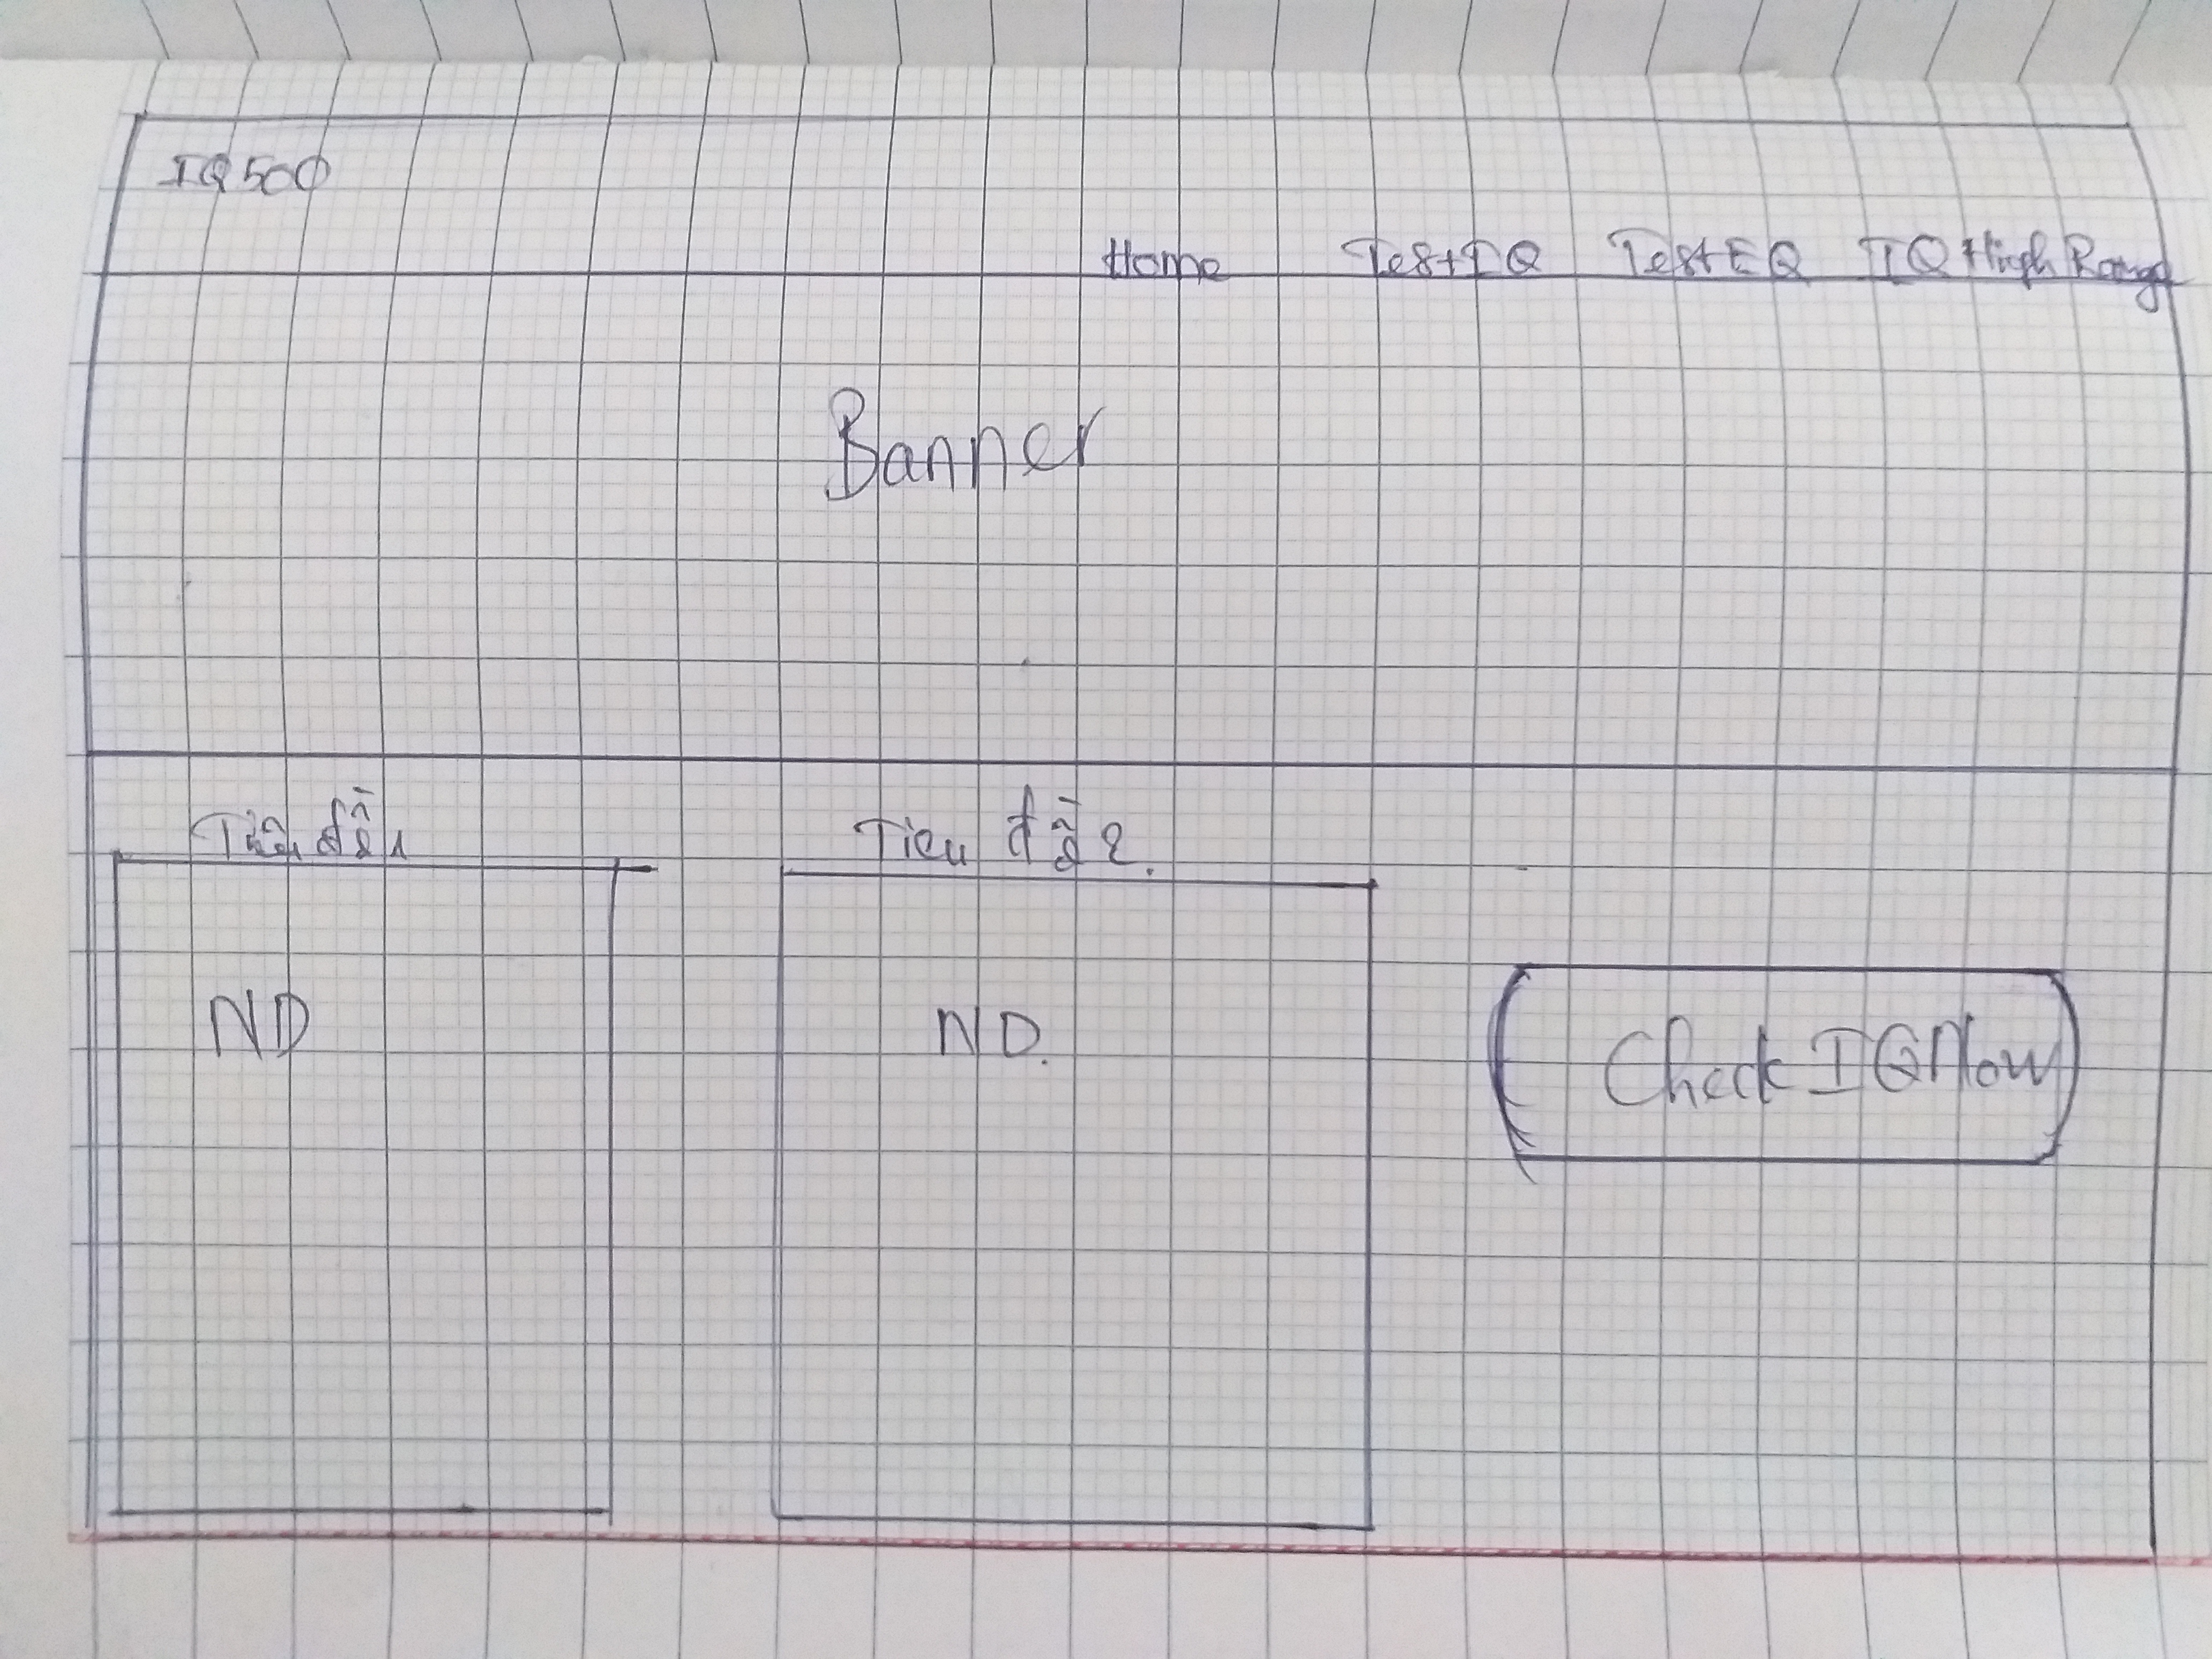 IQ500
Home TestIQ TestEQ IQ High Range
Banner
Tiêu đề 1
Tieu đề 2.
ND
ND.
Check IQ Now